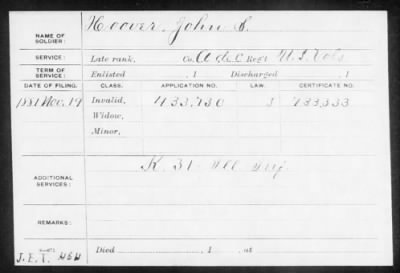 NAME OF SOLDIER: Hoover, John S.
SERVICE: Late rank, Co. A & C Reg't U.S. Vols
TERM OF SERVICE: Enlisted , 1 Discharged , 1
DATE OF FILING. CLASS. APPLICATION NO. LAW. CERTIFICATE NO.
1881 Nov. 19 Invalid, 433,730 733,333
Widow,
Minor,
ADDITIONAL SERVICES: K. 31 Ill. Inf.
REMARKS:
Died , 1 , at
J.E.T.